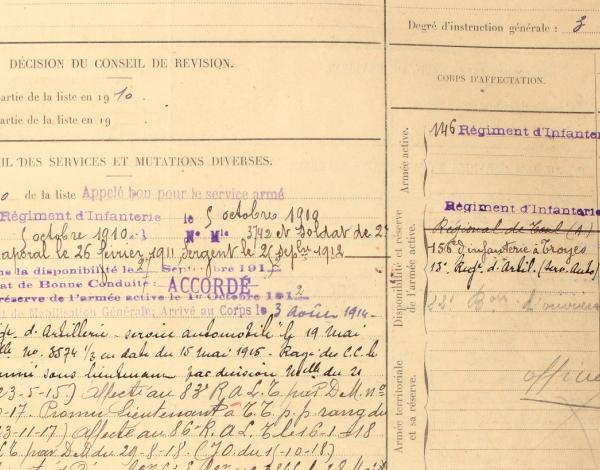 Degré d'instruction générale : 3
DÉCISION DU CONSEIL DE REVISION.
partie de la liste en 1910.
partie de la liste en 19 .
IL DES SERVICES ET MUTATIONS DIVERSES.
de la liste Appelé bon pour le service armé
Régiment d'Infanterie le 5 octobre 1910
octobre 1910 N° Mle 3742 et Soldat de 2e
Caporal le 26 février 1911 Sergent le 26 Sepbre 1912
ns la disponibilité le Septembre 191
at de Bonne Conduite: ACCORDÉ
réserve de l'armée active le 1er Octobre 191
de Mobilisation Générale, Arrivé au Corps le 3 août 1914
d'Artillerie service automobile le 19 mai
No. 8574 1/3 en date du 15 mai 1915 - Rayé des C.C. le
sous lieutenant par décision du
23-5-15) Affecté au 83e R.A.L. D.M. n°
-17. Promu Lieutenant à T.T. p.p. rang du
3-11-17) Affecté au 86e R.A.L. le 16-1-18
D.M. du 29-8-18 (JO du 1-10-18)
CORPS D'AFFECTATION.
Armée active.
146 Régiment d'Infanterie
Disponibilité et réserve
de l'armée active.
Régiment d'Infanterie
Régional de Toul (1)
156e d'infanterie à Troyes
13e Regt. d'Artil. (Serv. Auto)
Armée territoriale
et sa réserve.